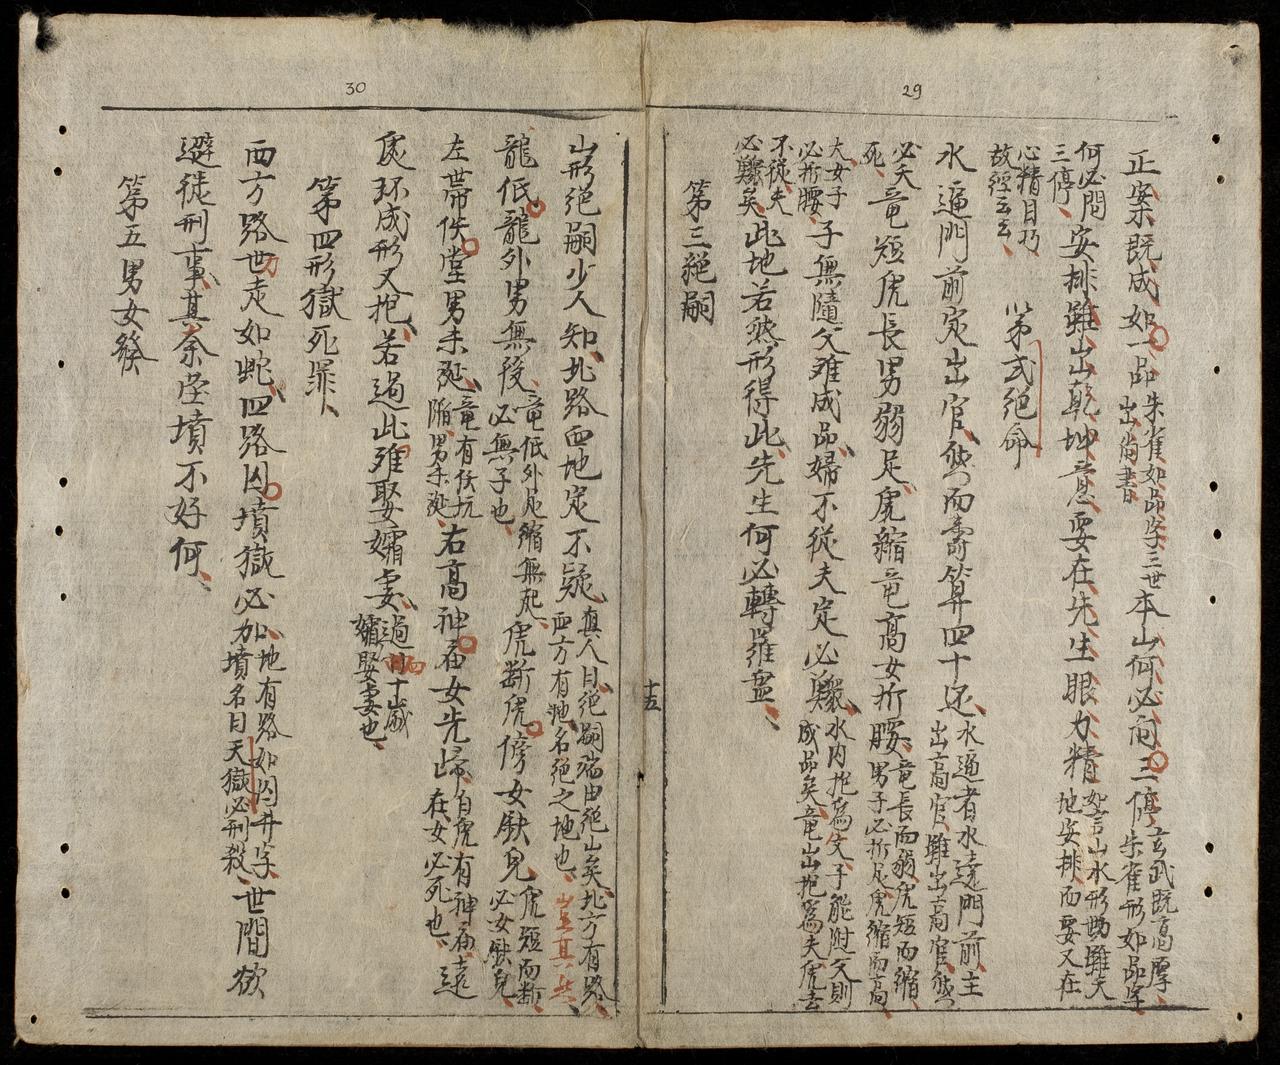 29
正案既成如一品朱雀如品字三世出尚書本山何必向三停玄武既高厚朱雀形如品字
何必問三停安排雖出乾坤意要在先生眼力精如言山水形勘雖天地安排而要又在
心精目巧故經云云 第弍絕命
水逼門前定出官然而壽算四十还水逼者水遶門前主出高官雖出高官然
必夭死竜短虎長男弱足虎縮竜高女折腰竜長而弱虎短而縮男子必折足虎縮而高
大女子必折腰子無隨父难成品婦不從夫定必難水内抱為父子能附父則成品矣竜山抱為夫虎去
不從夫必難矣此地若然形得此先生何必轉羅盘
第三絕嗣
十五
30
山形绝嗣少人知北路血地定不疑真人曰绝嗣端由绝山矣北方有路西方有她名绝之地也
龍低龍外男無後竜低外足縮無起必無子也虎断虎傍女缺皃虎短而断必女缺皃
左世帶佚堂男未涎竜有伏坑陷男未涎右高神庙女先歸白虎有神庙在女必死也遠
虔环成形又抱若過此难娶孀妻過四十歲孀娶妻也
第四形獄死罪
西方路世走如蛇四路囚墳獄必加地有路如囚井字墳名曰天獄必刑殺世間欲
避徒刑事其奈怪墳不好何
第五男女發